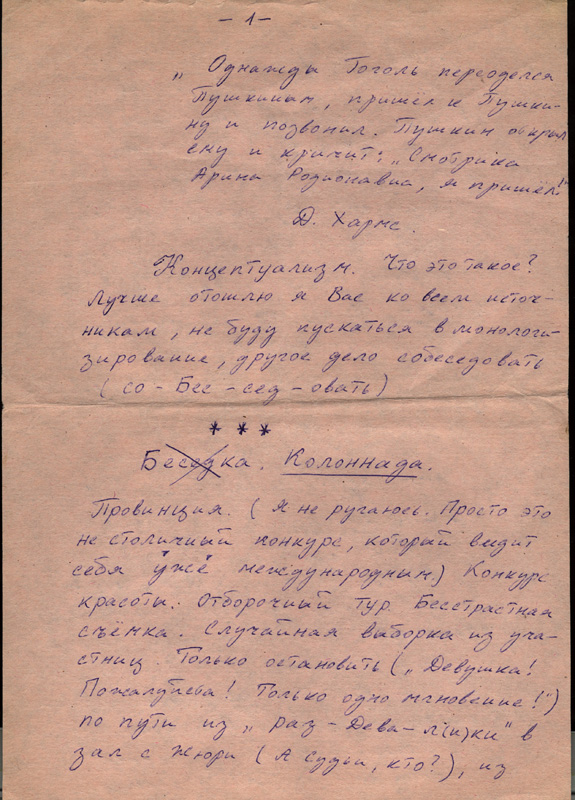 - 1 -
„ Однажды Гоголь переоделся
Пушкиным, пришёл к Пушки-
ну и позвонил. Пушкин открыл
ему и кричит: „Смотрика
Арина Родионавна, я пришёл!"
Д. Хармс.
Концептуализм. Что это такое?
Лучше отошлю я Вас ко всем источ-
никам, не буду пускаться в монологи-
зирование, другое дело собеседовать
(со - Бес - сед - овать)
* * *
Беседка. Колоннада.
Провинция. (Я не ругаюсь. Просто это
не столичный конкурс, который видит
себя уже международным.) Конкурс
красоты. Отборочный тур. Бесстрастная
съёмка. Случайная выборка из уча-
стниц. Только остановить („Девушка!
Пожалуйста! Только одно мгновение!")
по пути из „раз-Дева-л(и)ки" в
зал с жюри (А судьи, кто?), из